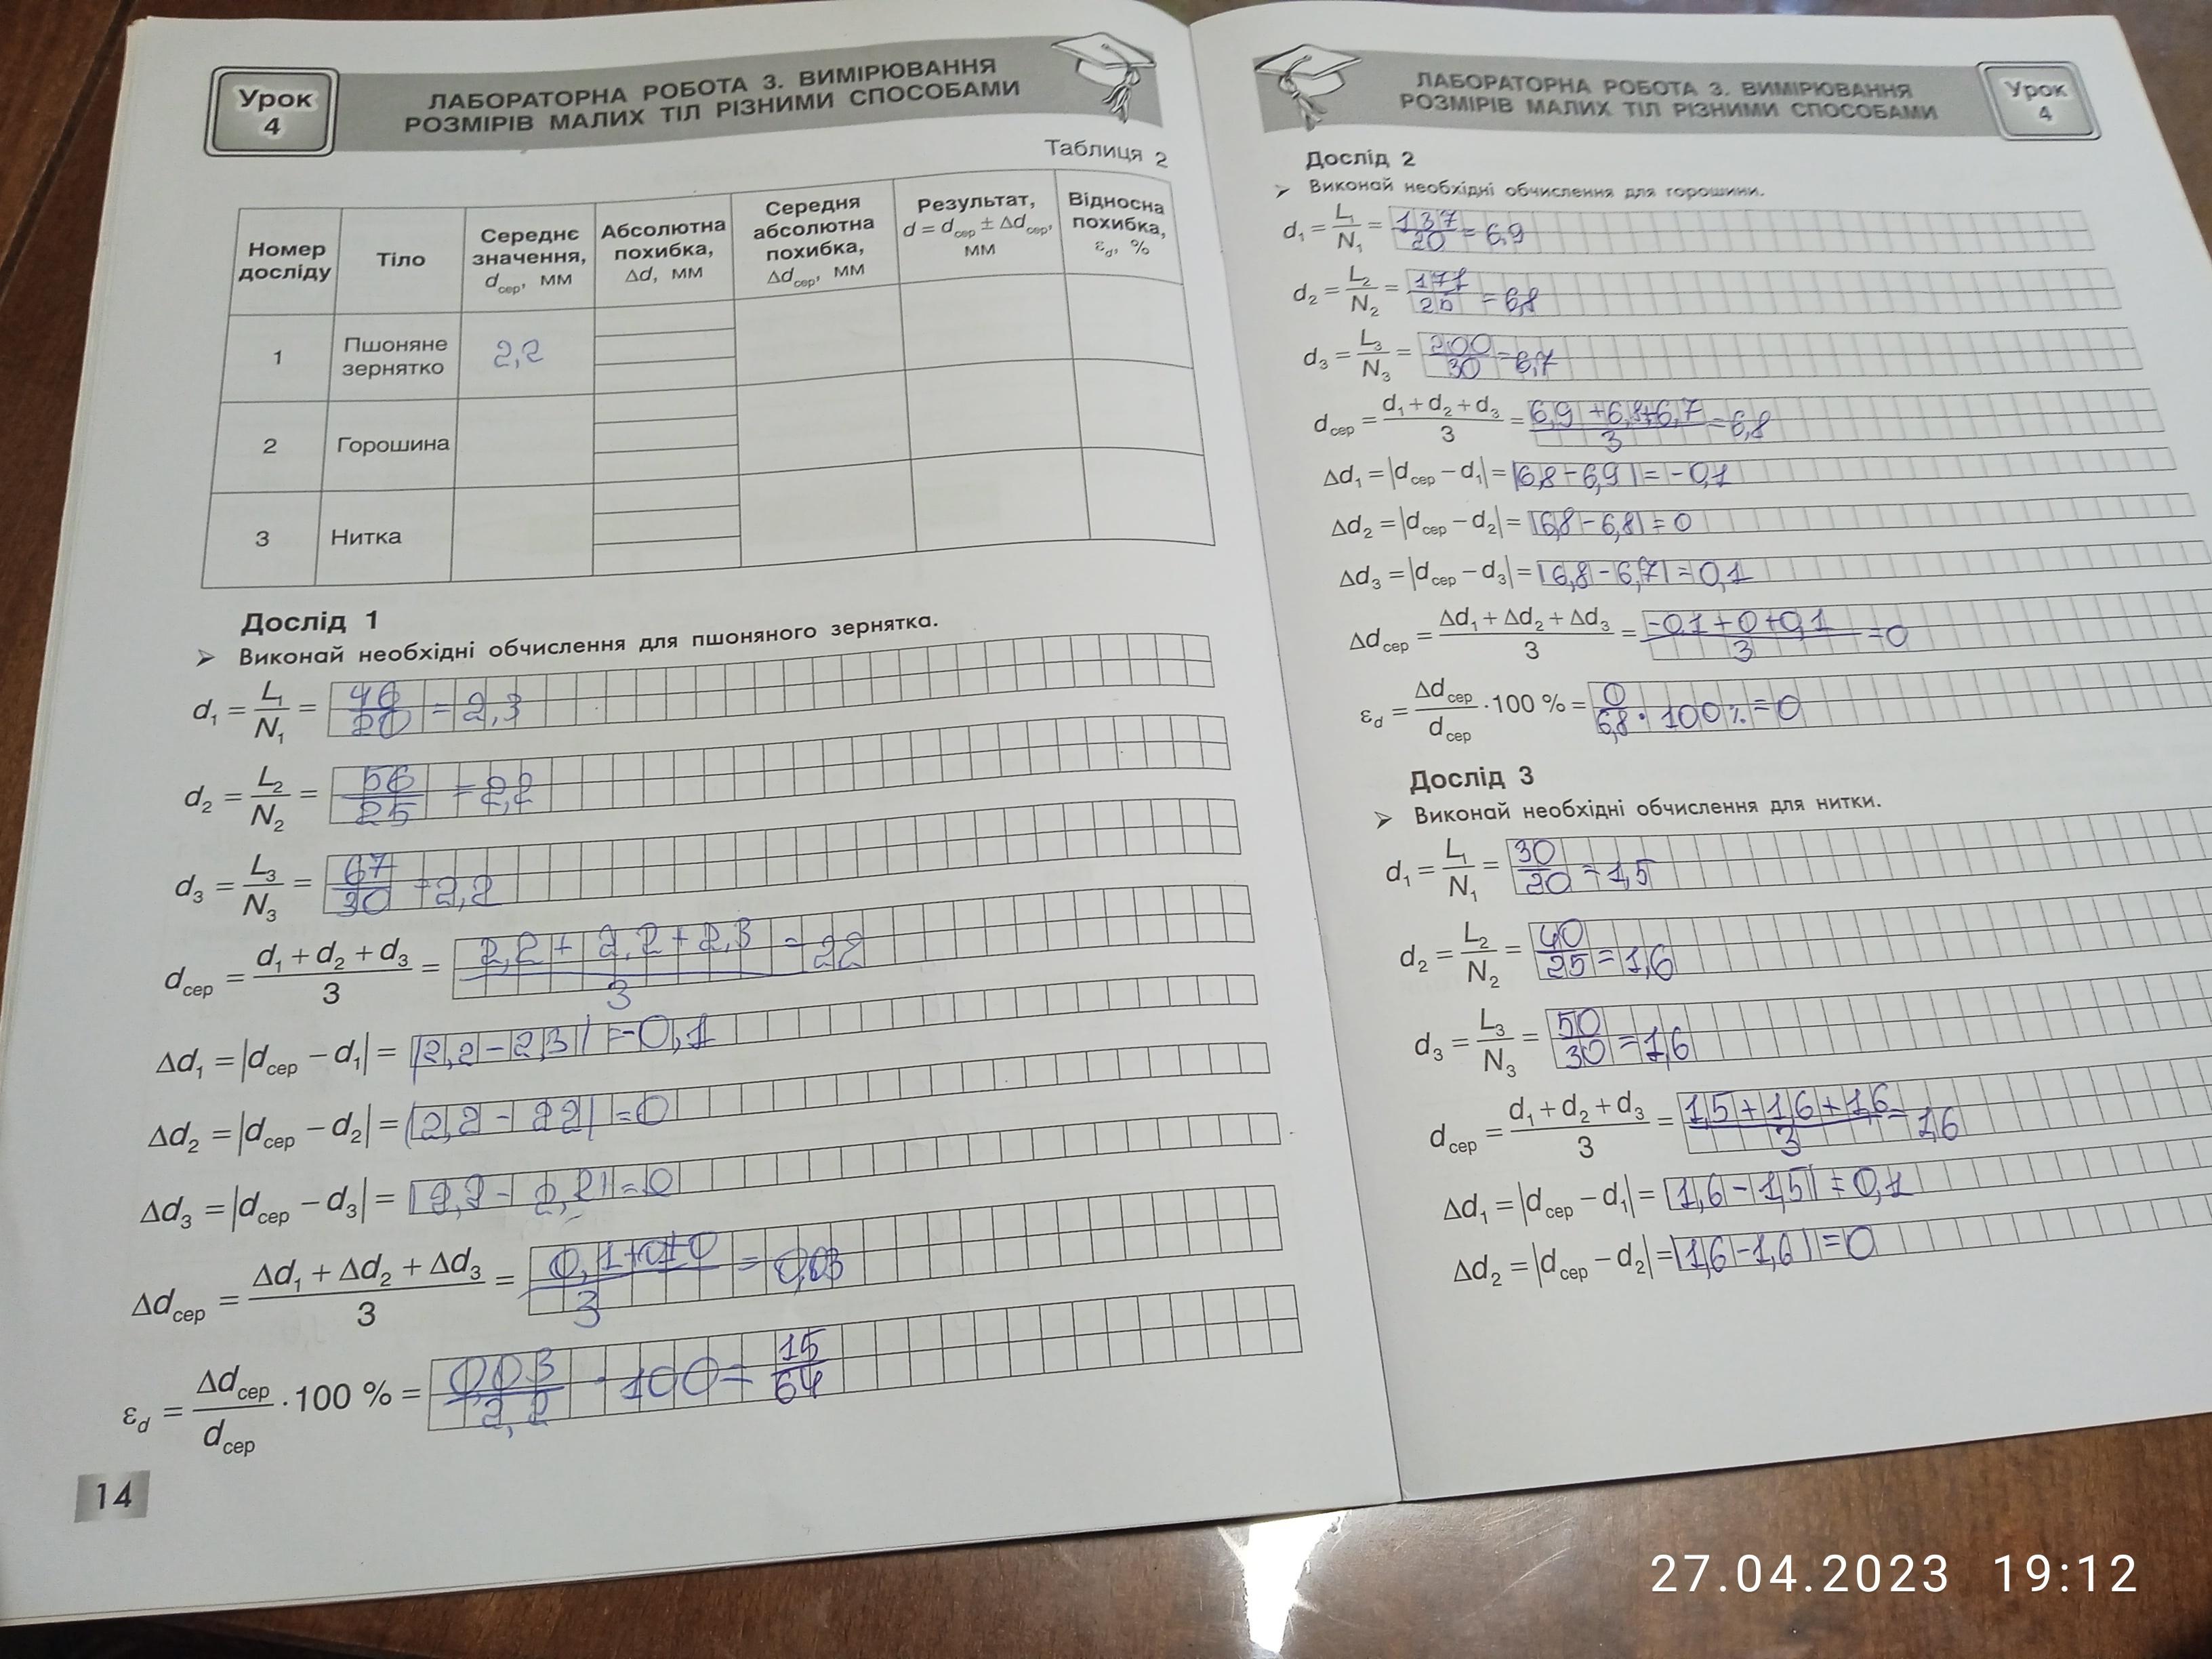 Урок 4
ЛАБОРАТОРНА РОБОТА 3. ВИМІРЮВАННЯ
РОЗМІРІВ МАЛИХ ТІЛ РІЗНИМИ СПОСОБАМИ
Таблиця 2
Номер досліду | Тіло | Середнє значення, dсер, мм | Абсолютна похибка, Δd, мм | Середня абсолютна похибка, Δdсер, мм | Результат, d = dсер ± Δdсер, мм | Відносна похибка, εd, %
1 | Пшоняне зернятко | 2,2
2 | Горошина
3 | Нитка
Дослід 1
➢ Виконай необхідні обчислення для пшоняного зернятка.
d₁ = L₁/N₁ = 46/20 = 2,3
d₂ = L₂/N₂ = 56/25 = 2,2
d₃ = L₃/N₃ = 67/30 = 2,2
dсер = (d₁ + d₂ + d₃)/3 = (2,2 + 2,2 + 2,3)/3 = 22
Δd₁ = |dсер – d₁| = |2,2 – 2,3| = –0,1
Δd₂ = |dсер – d₂| = |2,2 – 22| = 0
Δd₃ = |dсер – d₃| = |2,2 – 2,2| = 0
Δdсер = (Δd₁ + Δd₂ + Δd₃)/3 = (0,1+0+0)/3 = 0,03
εd = Δdсер/dсер · 100 % = 0,03/2,2 · 100 = 15/64
14
ЛАБОРАТОРНА РОБОТА 3. ВИМІРЮВАННЯ
РОЗМІРІВ МАЛИХ ТІЛ РІЗНИМИ СПОСОБАМИ
Урок 4
Дослід 2
➢ Виконай необхідні обчислення для горошини.
d₁ = L₁/N₁ = 137/20 = 6,9
d₂ = L₂/N₂ = 171/25 = 6,8
d₃ = L₃/N₃ = 200/30 = 6,7
dсер = (d₁ + d₂ + d₃)/3 = (6,9 + 6,8 + 6,7)/3 = 6,8
Δd₁ = |dсер – d₁| = |6,8 – 6,9| = –0,1
Δd₂ = |dсер – d₂| = |6,8 – 6,8| = 0
Δd₃ = |dсер – d₃| = |6,8 – 6,7| = 0,1
Δdсер = (Δd₁ + Δd₂ + Δd₃)/3 = (–0,1 + 0 + 0,1)/3 = 0
εd = Δdсер/dсер · 100 % = 0/6,8 · 100 % = 0
Дослід 3
➢ Виконай необхідні обчислення для нитки.
d₁ = L₁/N₁ = 30/20 = 1,5
d₂ = L₂/N₂ = 40/25 = 1,6
d₃ = L₃/N₃ = 50/30 = 1,6
dсер = (d₁ + d₂ + d₃)/3 = (1,5 + 1,6 + 1,6)/3 = 1,6
Δd₁ = |dсер – d₁| = |1,6 – 1,5| = 0,1
Δd₂ = |dсер – d₂| = |1,6 – 1,6| = 0
27.04.2023 19:12